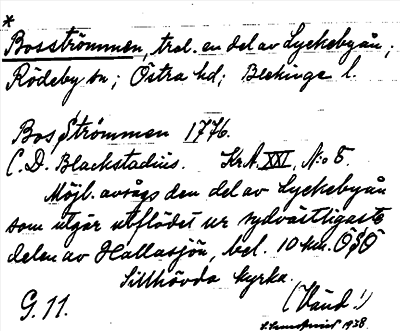 *
Bosströmmen, trol. en del av Lyckebyån;
Rödeby sn; Östra hd; Blekinge l.
Bos Strömmen 1776.
C. D. Blackstadius. KrA. XXI, N:o 5.
Möjl. avses den del av Lyckebyån
som utgör utflödet ur sydvästligaste
delen av Hallasjön, bel. 10 km. ÖSÖ
Sillhövda kyrka.
G. 11. (Vänd!)
1938